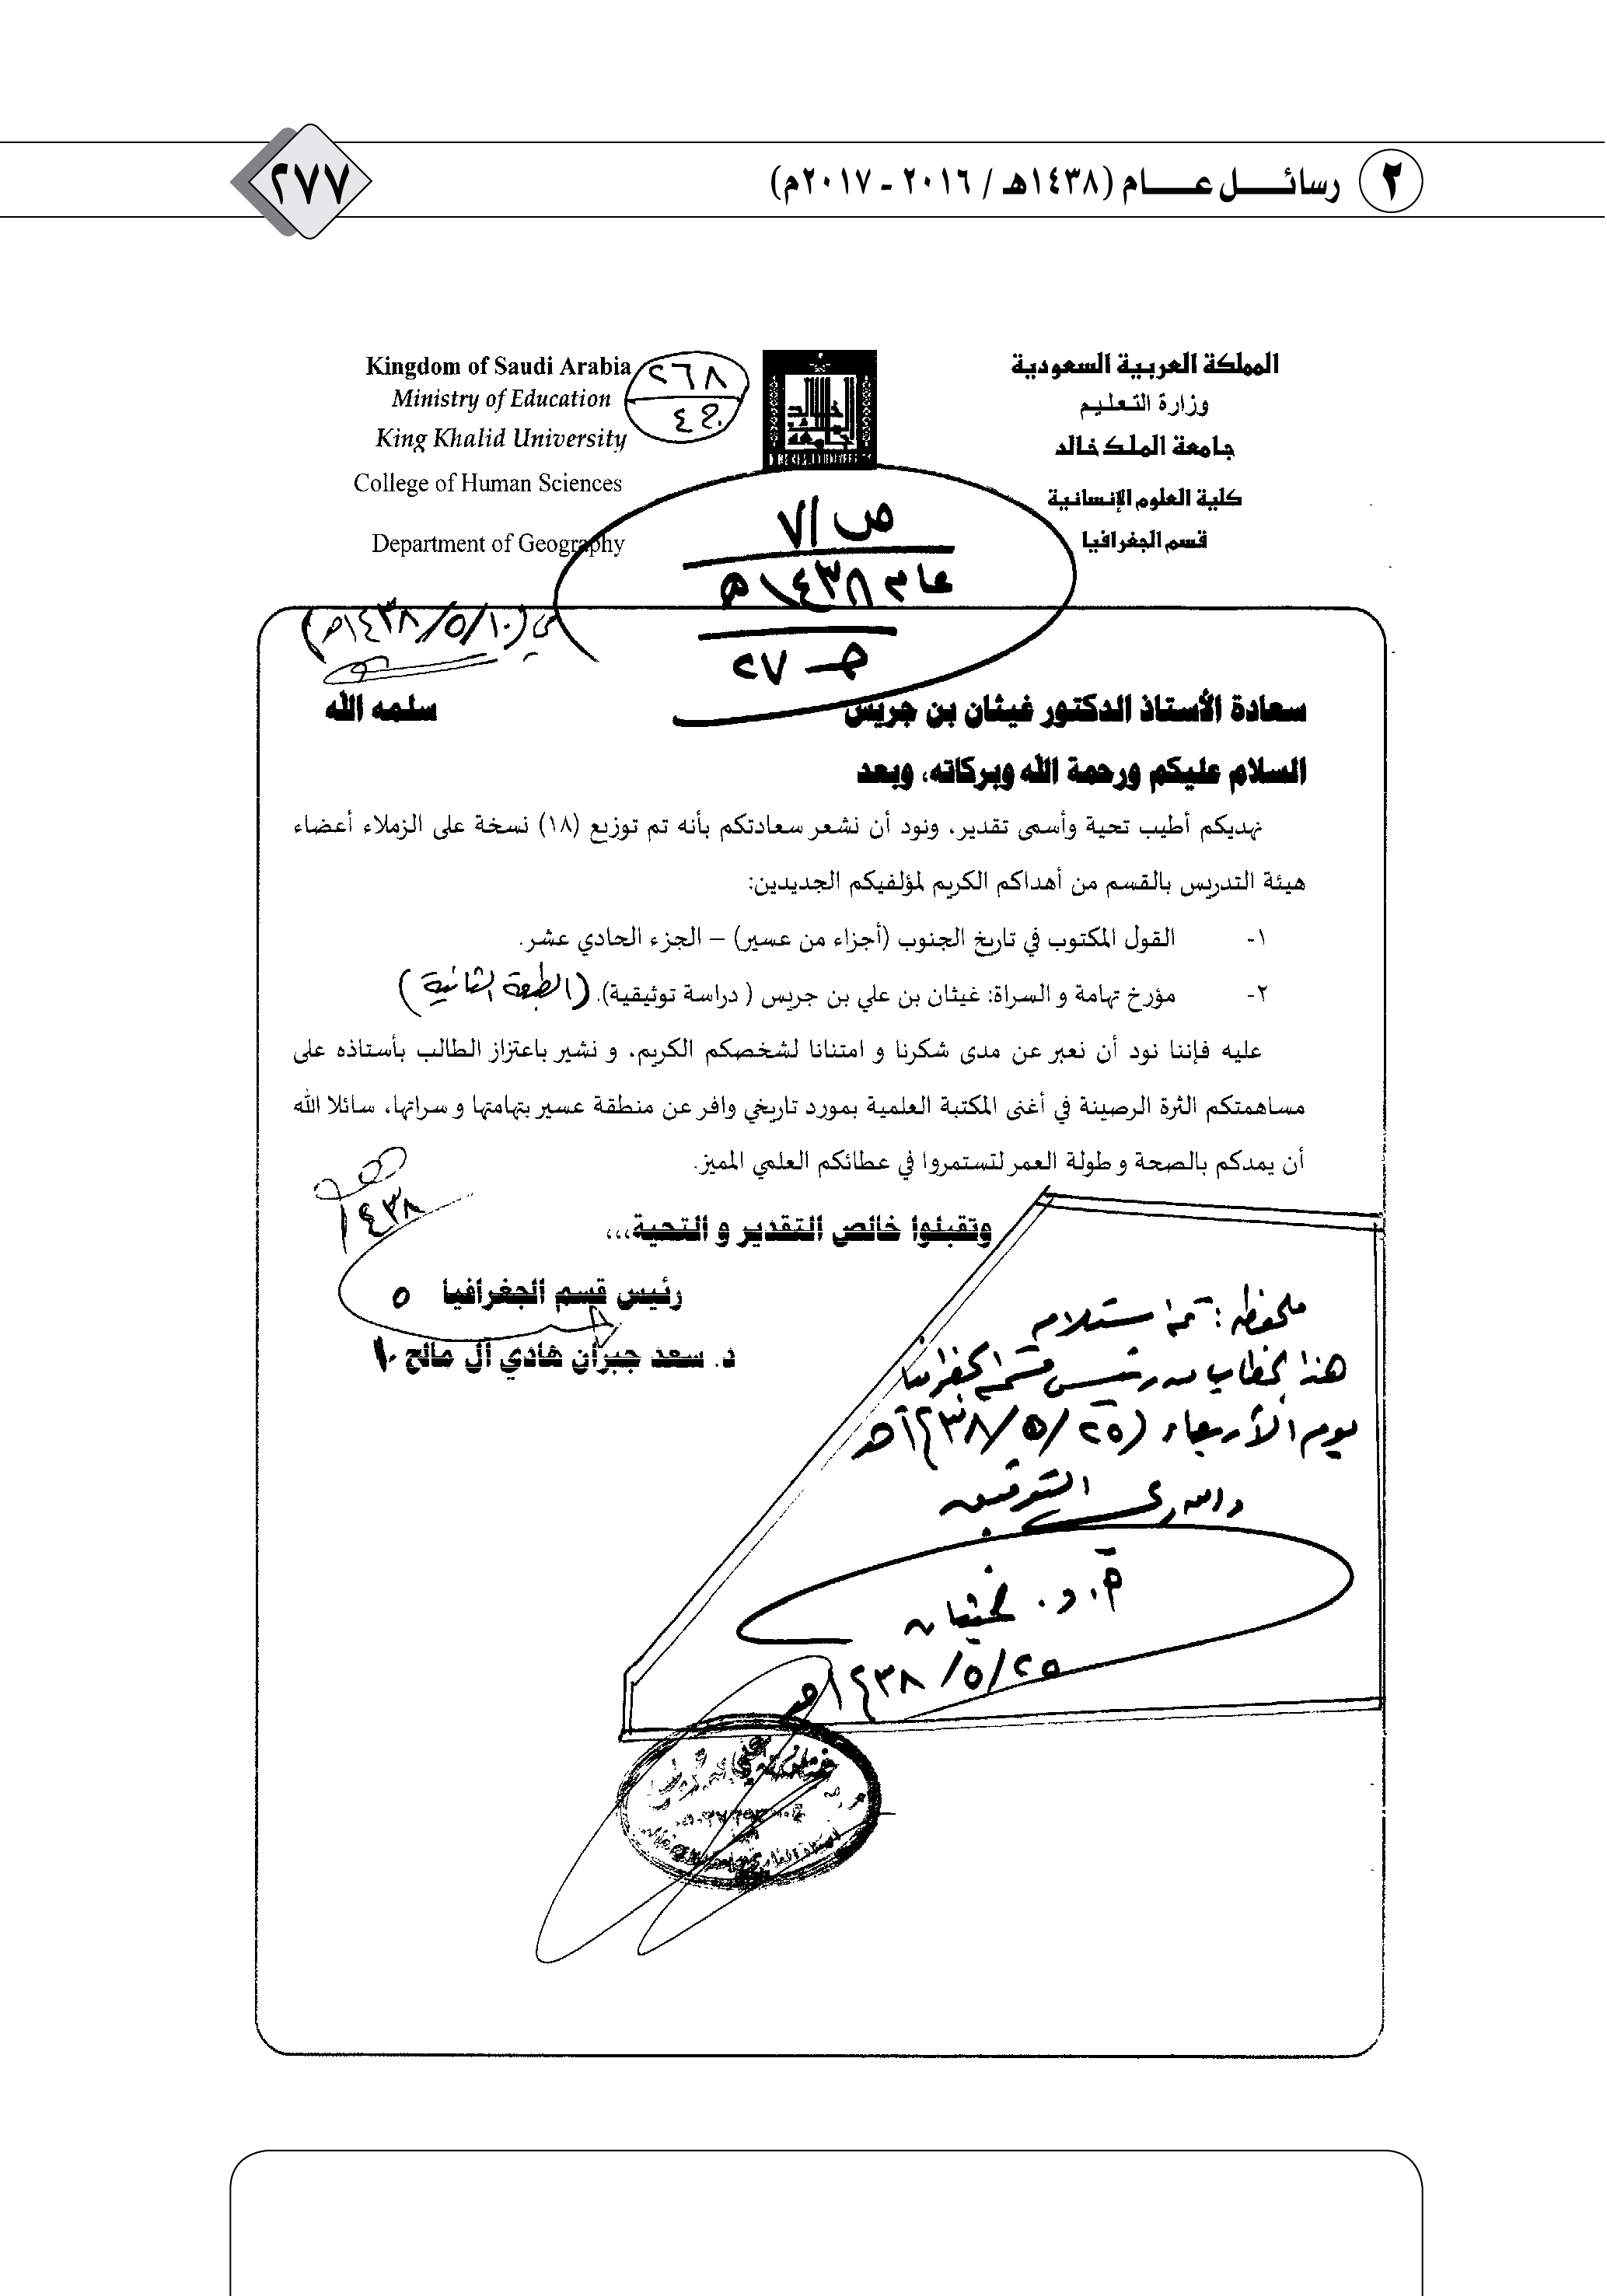 ٢ رسائل عام (١٤٣٨هـ / ٢٠١٦ ـ ٢٠١٧م)
٢٧٧
المملكة العربية السعودية
وزارة التعليم
جامعة الملك خالد
كلية العلوم الإنسانية
قسم الجغرافيا
Kingdom of Saudi Arabia
Ministry of Education
King Khalid University
College of Human Sciences
Department of Geography
٢٦٨
ص / ٧
عام ١٤٣٨هـ
جـ ٢٧
في (١٤٣٨/٥/١٠هـ)
سعادة الأستاذ الدكتور غيثان بن جريس سلمه الله
السلام عليكم ورحمة الله وبركاته، وبعد
نهديكم أطيب تحية وأسمى تقدير، ونود أن نشعر سعادتكم بأنه تم توزيع (١٨) نسخة على الزملاء أعضاء
هيئة التدريس بالقسم من أهداكم الكريم لمؤلفيكم الجديدين:
١- القول المكتوب في تاريخ الجنوب (أجزاء من عسير) – الجزء الحادي عشر.
٢- مؤرخ تهامة و السراة: غيثان بن علي بن جريس ( دراسة توثيقية). (الطبعة الثانية)
عليه فإننا نود أن نعبر عن مدى شكرنا و امتنانا لشخصكم الكريم، و نشير باعتزاز الطالب بأستاذه على
مساهمتكم الثرة الرصينة في أغنى المكتبة العلمية بمورد تاريخي وافر عن منطقة عسير بتهامتها و سراتها، سائلا الله
أن يمدكم بالصحة و طولة العمر لتستمروا في عطائكم العلمي المميز.
وتقبلوا خالص التقدير و التحية،،،
١٤٣٨
رئيس قسم الجغرافيا ٥
د. سعد جبران هادي آل مالح ١٠
ملحوظة: تم استلام
هذا الخطاب من رئيس قسم الجغرافيا
يوم الأربعاء (١٤٣٨/٥/٢٥هـ
والله ولي التوفيق
أ. د. غيثان
١٤٣٨/٥/٢٥هـ